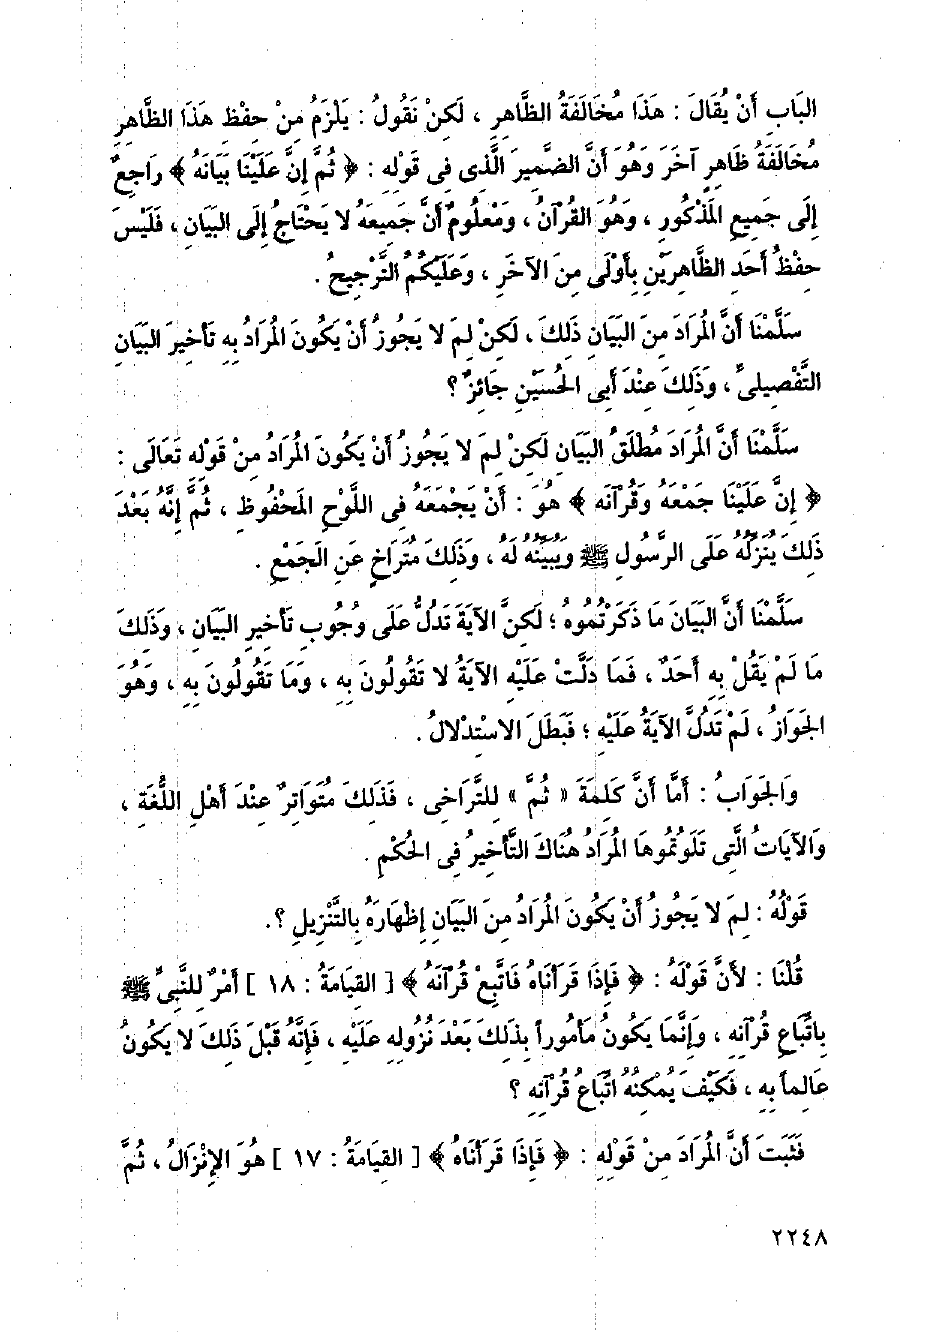 البَابِ أَنْ يُقَالَ : هَذَا مُخَالَفَةُ الظَّاهِرِ ، لَكِنْ نَقُولُ : يَلْزَمُ مِنْ حِفْظِ هَذَا الظَّاهِرِ
مُخَالَفَةُ ظَاهِرٍ آخَرَ وَهُوَ أَنَّ الضَّمِيرَ الَّذِى فِى قَوْلِهِ : ﴿ ثُمَّ إِنَّ عَلَيْنَا بَيَانَهُ ﴾ رَاجِعٌ
إِلَى جَمِيعِ المَذْكُورِ ، وَهُوَ القُرْآنُ ، وَمَعْلُومٌ أَنَّ جَمِيعَهُ لا يَحْتَاجُ إِلَى البَيَانِ ، فَلَيْسَ
حِفْظُ أَحَدِ الظَّاهِرَيْنِ بِأَوْلَى مِنَ الآخَرِ ، وَعَلَيْكُمُ التَّرْجِيحُ .
سَلَّمْنَا أَنَّ المُرَادَ مِنَ البَيَانِ ذَلِكَ ، لَكِنْ لِمَ لا يَجُوزُ أَنْ يَكُونَ المُرَادُ بِهِ تَأْخِيرَ البَيَانِ
التَّفْصِيلىِّ ، وَذَلِكَ عِنْدَ أَبِى الحُسَيْنِ جَائِزٌ ؟
سَلَّمْنَا أَنَّ المُرَادَ مُطْلَقُ البَيَانِ لَكِنْ لِمَ لا يَجُوزُ أَنْ يَكُونَ المُرَادُ مِنْ قَوْلِهِ تَعَالَى :
﴿ إِنَّ عَلَيْنَا جَمْعَهُ وَقُرْآنَه ﴾ هُوَ : أَنْ يَجْمَعَهُ فِى اللَّوْحِ المَحْفُوظِ ، ثُمَّ إِنَّهُ بَعْدَ
ذَلِكَ يُنَزِّلُهُ عَلَى الرَّسُولِ ﷺ وَيُبَيِّنُهُ لَهُ ، وَذَلِكَ مُتَرَاخٍ عَنِ الَجَمْعِ .
سَلَّمْنَا أَنَّ البَيَانَ مَا ذَكَرْتُمُوهُ ؛ لَكِنَّ الآيَةَ تَدُلُّ عَلَى وُجُوبِ تَأخِيرِ البَيَانِ ، وَذَلِكَ
مَا لَمْ يَقُلْ بِهِ أَحَدٌ ، فَمَا دَلَّتْ عَلَيْهِ الآيَةُ لا تَقُولُونَ بِهِ ، وَمَا تَقُولُونَ بِهِ ، وَهُوَ
الجَوَازُ ، لَمْ تَدُلَّ الآيَةُ عَلَيْهِ ؛ فَبَطَلَ الاسْتِدْلالُ .
وَالجَوَابُ : أَمَّا أَنَّ كَلِمَةَ « ثُمَّ » لِلتَّرَاخِى ، فَذَلِكَ مُتَوَاتِرٌ عِنْدَ أَهْلِ اللُّغَةِ ،
وَالآيَاتُ الَّتِى تَلَوْتُمُوهَا المُرَادُ هُنَاكَ التَّأْخِيرُ فِى الحُكْمِ .
قَوْلُهُ : لِمَ لا يَجُوزُ أَنْ يَكُونَ المُرَادُ مِنَ البَيَانِ إِظْهَارَهُ بِالتَّنْزِيلِ ؟.
قُلْنَا : لأَنَّ قَوْلَهُ : ﴿ فَإِذَا قَرَأْنَاهُ فَاتَّبِعْ قُرْآنَهُ ﴾ [ القِيَامَةُ : ١٨ ] أَمْرٌ لِلنَّبِىِّ ﷺ
بِاتِّبَاعِ قُرْآنِهِ ، وَإِنَّمَا يَكُونُ مَأْمُوراً بِذَلِكَ بَعْدَ نُزُولِهِ عَلَيْهِ ، فَإِنَّهُ قَبْلَ ذَلِكَ لا يَكُونُ
عَالِماً بِهِ ، فَكَيْفَ يُمْكِنُهُ اتِّبَاعُ قُرْآنِهِ ؟
فَثَبَتَ أَنَّ المُرَادَ مِنْ قَوْلِهِ : ﴿ فَإِذَا قَرَأْنَاهُ ﴾ [ القِيَامَةُ : ١٧ ] هُوَ الإِنْزَالُ ، ثُمَّ
٢٢٤٨